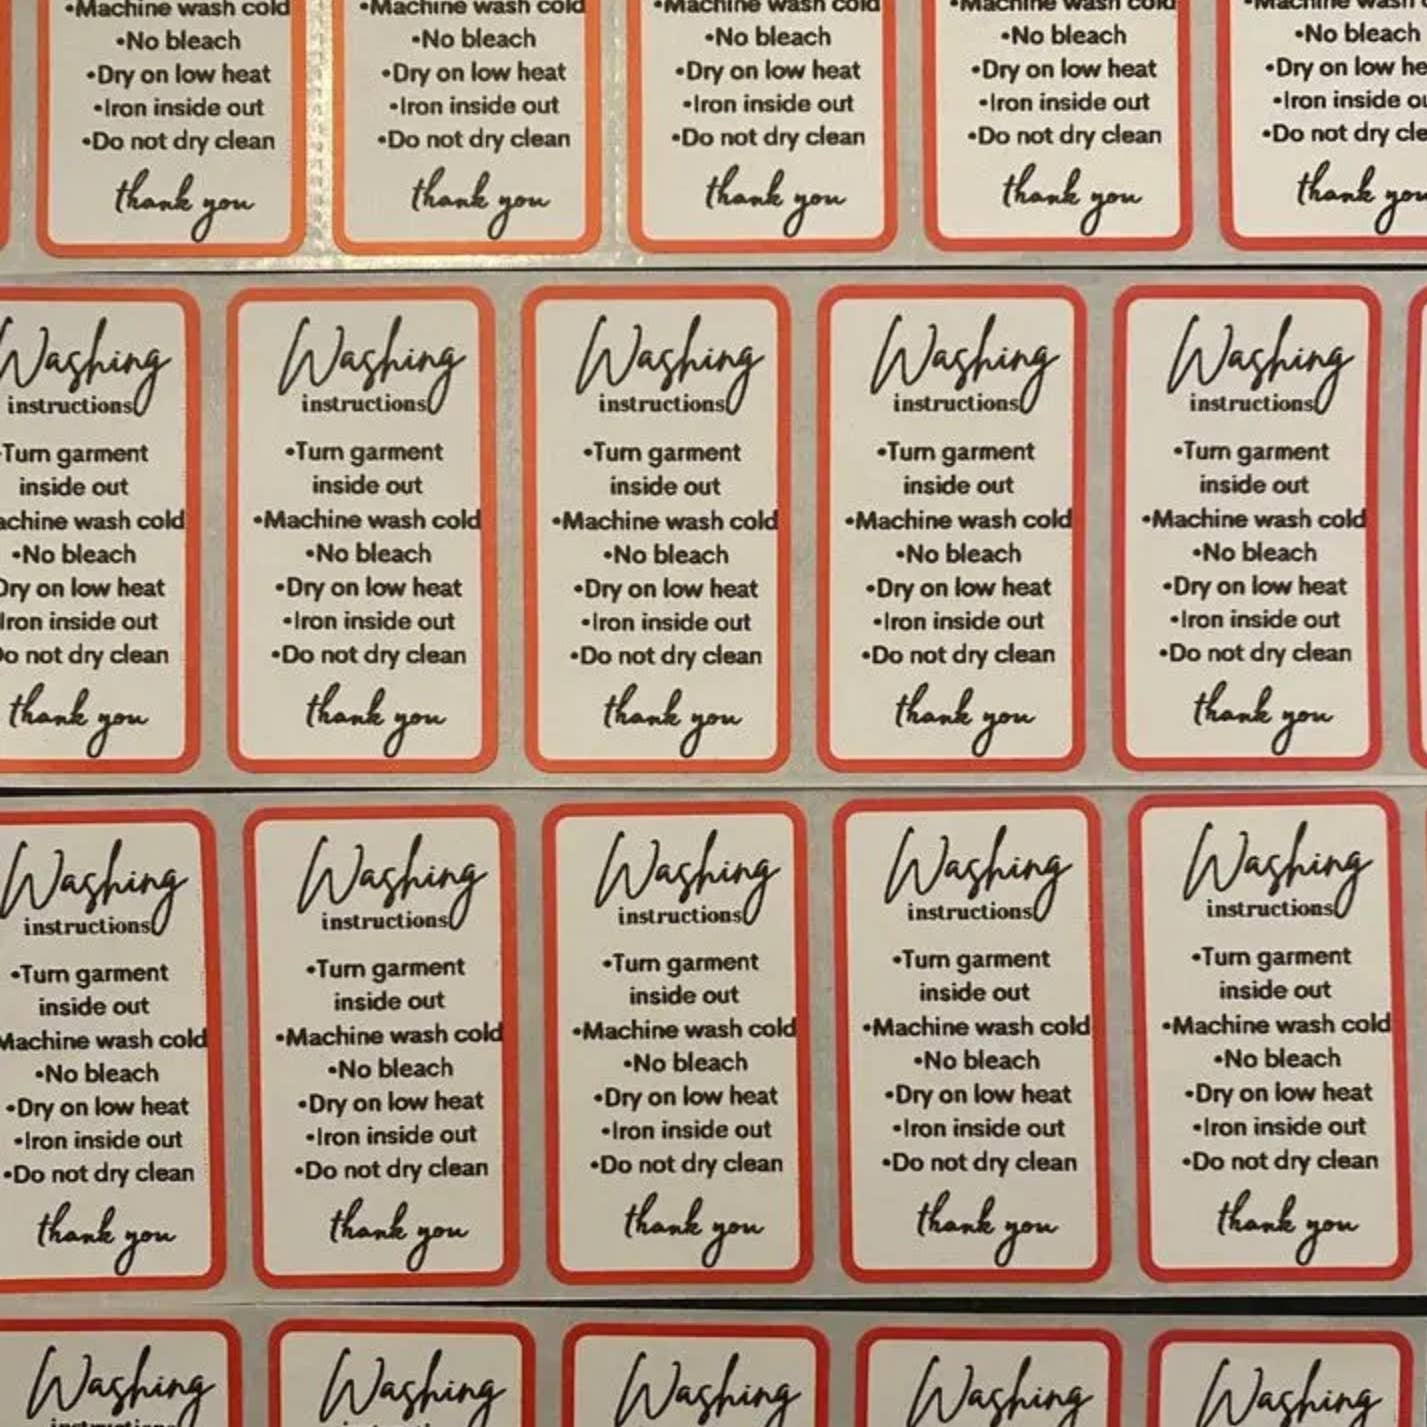 •Machine wash cold
•No bleach
•Dry on low heat
•Iron inside out
•Do not dry clean
thank you
•Machine wash cold
•No bleach
•Dry on low heat
•Iron inside out
•Do not dry clean
thank you
•Machine wash cold
•No bleach
•Dry on low heat
•Iron inside out
•Do not dry clean
thank you
•Machine wash cold
•No bleach
•Dry on low heat
•Iron inside out
•Do not dry clean
thank you
•Machine wash
•No bleach
•Dry on low
•Iron inside
•Do not dry
thank you
Washing
instructions
Turn garment
inside out
wash cold
•No bleach
Dry on low heat
Iron inside out
not dry clean
thank you
Washing
instructions
•Turn garment
inside out
•Machine wash cold
•No bleach
•Dry on low heat
•Iron inside out
•Do not dry clean
thank you
Washing
instructions
•Turn garment
inside out
•Machine wash cold
•No bleach
•Dry on low heat
•Iron inside out
•Do not dry clean
thank you
Washing
instructions
•Turn garment
inside out
•Machine wash cold
•No bleach
•Dry on low heat
•Iron inside out
•Do not dry clean
thank you
Washing
instructions
•Turn garment
inside out
•Machine wash cold
•No bleach
•Dry on low heat
•Iron inside out
•Do not dry clean
thank you
Washing
instructions
•Turn garment
inside out
Machine wash cold
•No bleach
•Dry on low heat
•Iron inside out
•Do not dry clean
thank you
Washing
instructions
•Turn garment
inside out
•Machine wash cold
•No bleach
•Dry on low heat
•Iron inside out
•Do not dry clean
thank you
Washing
instructions
•Turn garment
inside out
•Machine wash cold
•No bleach
•Dry on low heat
•Iron inside out
•Do not dry clean
thank you
Washing
instructions
•Turn garment
inside out
•Machine wash cold
•No bleach
•Dry on low heat
•Iron inside out
•Do not dry clean
thank you
Washing
instructions
•Turn garment
inside out
•Machine wash cold
•No bleach
•Dry on low heat
•Iron inside out
•Do not dry clean
thank you
Washing
Washing
Washing
Washing
Washing